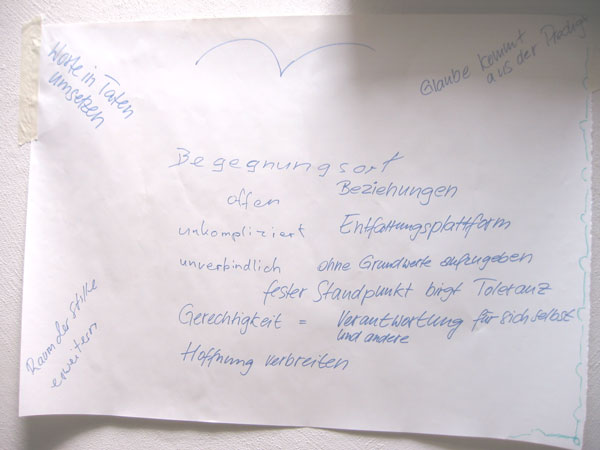 Worte in Taten
umsetzen
Glaube kommt
aus der Predigt
Begegnungsort
offen Beziehungen
unkompliziert Entfaltungsplattform
unverbindlich ohne Grundwerte aufzugeben
fester Standpunkt birgt Toleranz
Gerechtigkeit = Verantwortung für sich selbst
und andere
Hoffnung verbreiten
Raum der Stille
erweitern